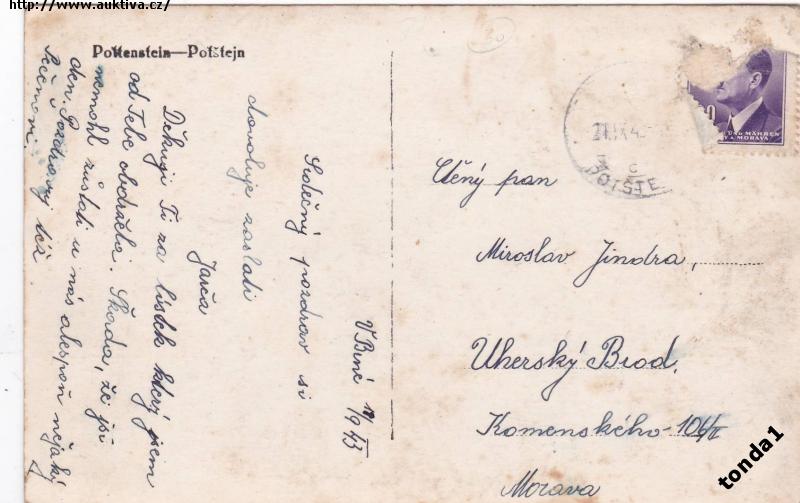 http://www.auktiva.cz/
Pottenstein—Potštejn
V Brně 12/9 43
Srdečný pozdrav si
dovoluje zaslati
Jarča
Děkuji Ti za lístek který jsem
od Tebe obdržela. Škoda, že jsi
nemohl zůstati u nás alespoň nějaký
den. Pozdravuj též
21.IX.43
POTŠTE
UND MÄHREN
A MORAVA
Ctěný pan
Miroslav Jindra,
Uherský Brod.
Komenského-106/II
Morava
tonda1